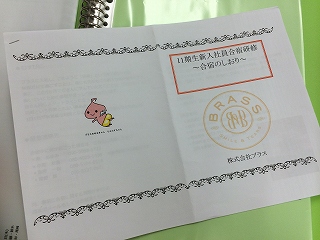 11期生新入社員合宿研修
～合宿のしおり～
BRASS
株式会社ブラス